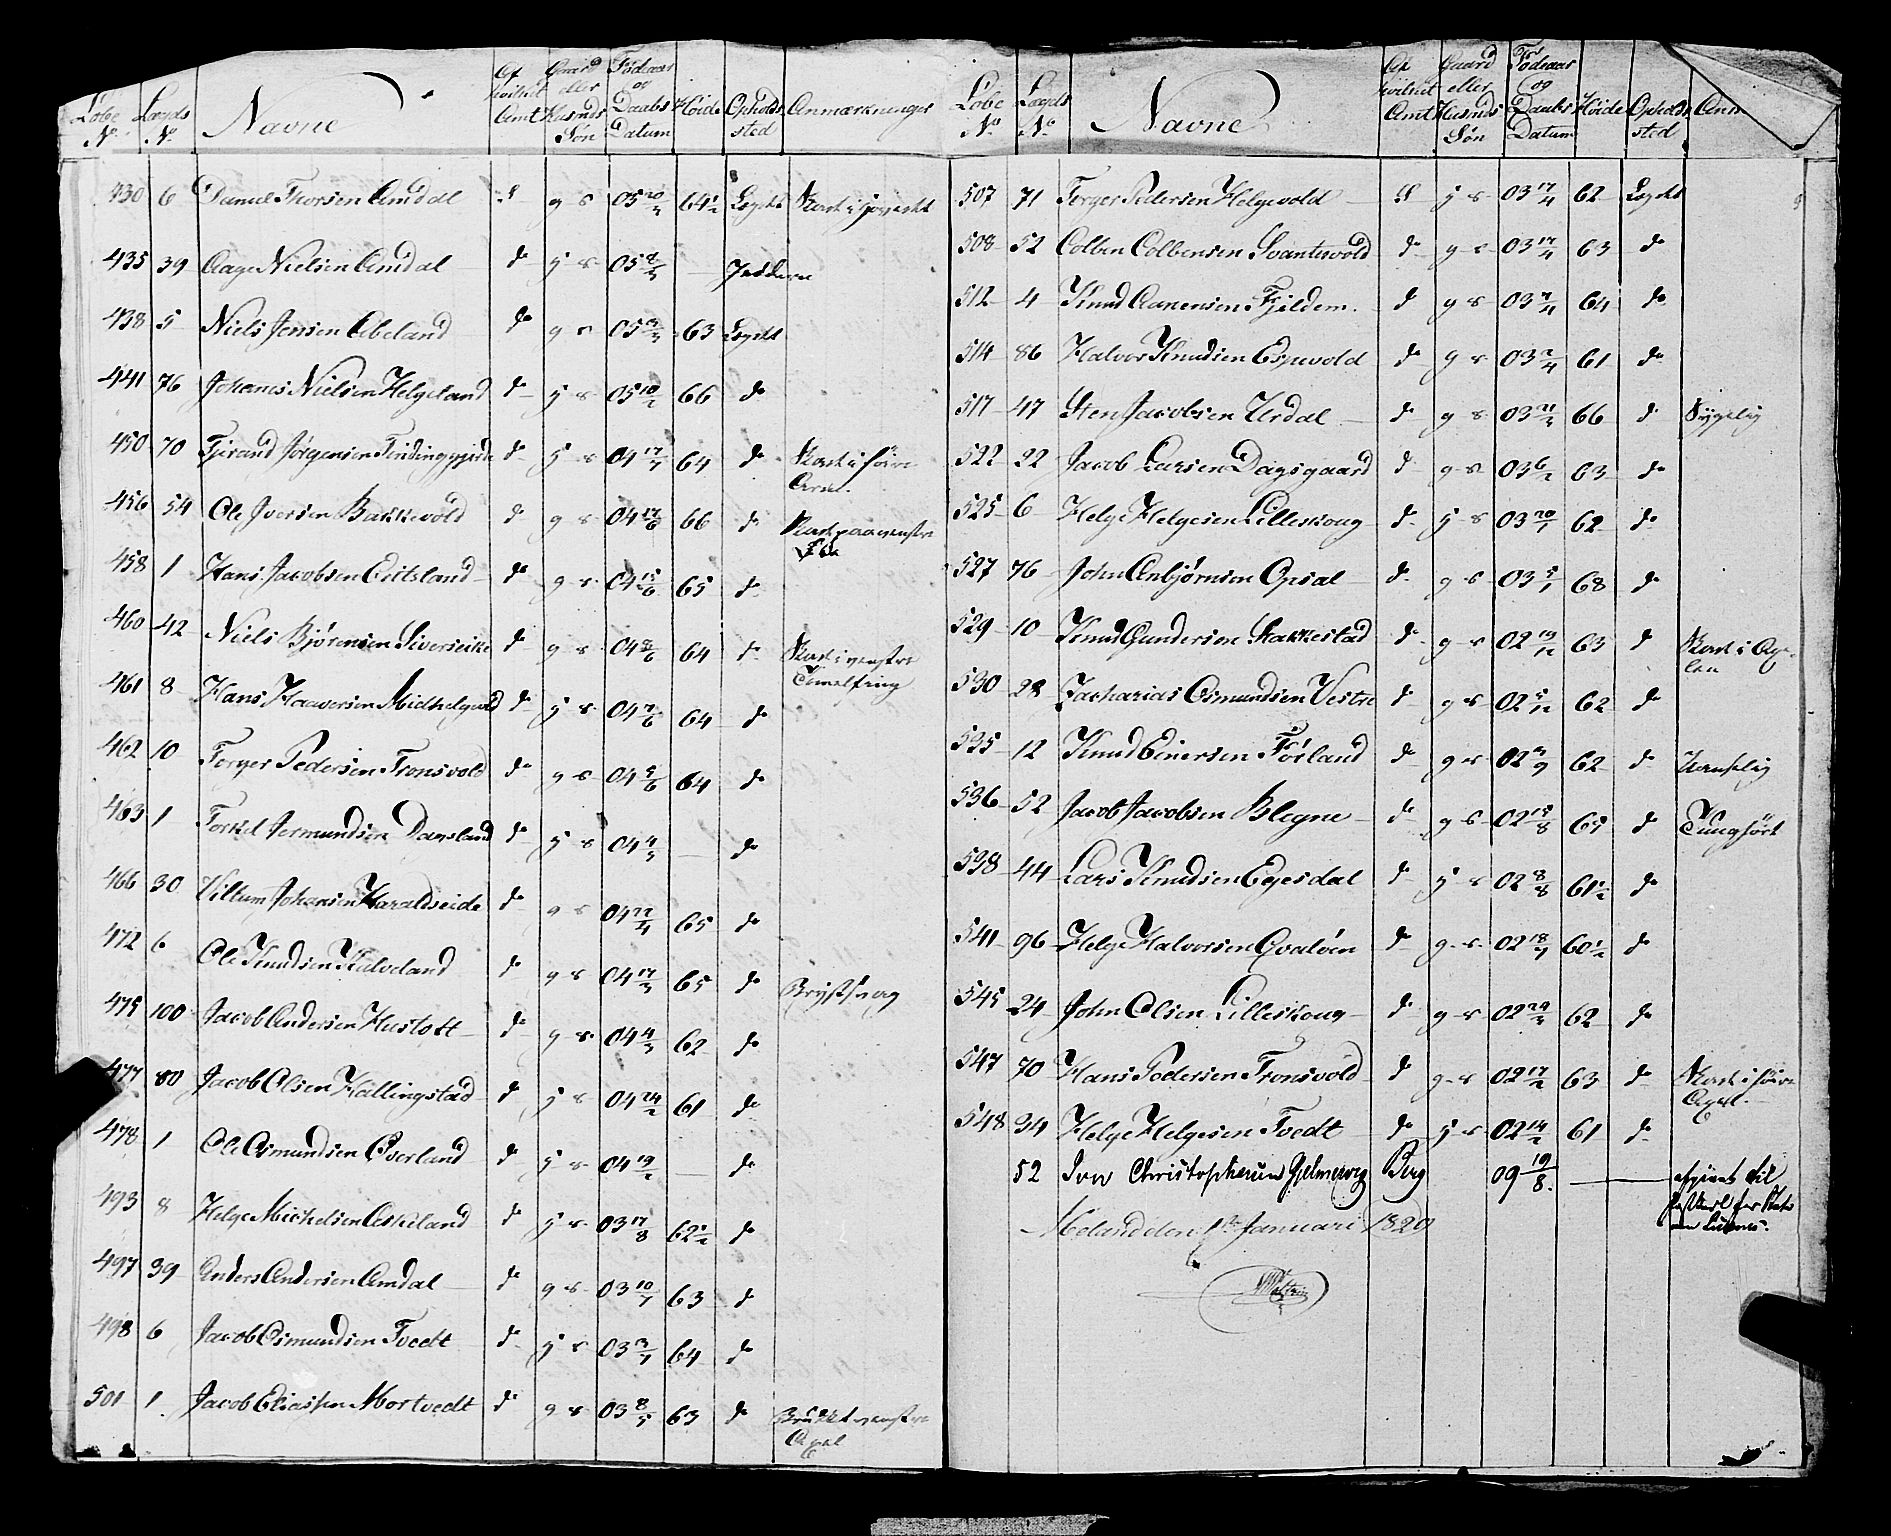 Løbe No. Lægds No. Navne Af hvilket Amt Gaard eller Husmds Søn Fødeaar og Daabs Datum Høide Opholds sted Anmærkninger
430 6 Daniel Thorsen Amdal S g s 05 64½ Lægdet Skade i
435 39 Aage Nielsen Amdal do j s 05 — Jedderen
438 5 Niels Jensen Abeland do g s 05 63 Lægdet
441 76 Johanes Nielsen Helgeland do j s 05 10/2 66 do
450 70 Tjerand Jørgensen do j s 04 17/7 64 do Skade i høire Arm.
456 54 Ole Iversen Bakkevold do g s 04 17/6 66 do Skade paa venstre
458 1 Hans Jacobsen Eitsland do g s 04 15/6 65 do
460 42 Niels Bjørensen Sivereike do g s 04 8/6 64 do Skade i venstre Tomelfring
461 8 Hans Haaversen Midhelgevold do j s 04 7/6 64 do
462 10 Torger Pedersen Tronsvold do g s 04 5/6 64 do
463 1 Torkel Jermundsen Dansland do j s 04 4/5 — do
466 30 Villum Johansen Haraldseide do g s 04 22/4 65 do
472 6 Ole Knudsen Kalveland do g s 04 17/3 65 do Brystsvag
475 100 Jacob Andersen Hustoft do g s 04 4/3 62 do
477 80 Jacob Olsen Hallingstad do j s 04 24/2 61 do
478 1 Ole Osmundsen Øverland do j s 04 19/2 — do
493 8 Helge Michelsen Askeland do j s 03 17/8 62½ do
497 39 Anders Andersen Amdal do g s 03 10/7 63 do
498 6 Jacob Osmundsen Tvedt do j s 03 3/7 64 do
501 1 Jacob Eliassen Mortvedt do g s 03 8/5 63 do Brukket venstre Axel
Løbe No. Lægds No. Navne Af hvilket Amt Gaard eller Husmds Søn Fødeaar og Daabs Datum Høide Opholds sted Anm
507 71 Torger Pedersen Helgevold S j s 03 17/4 62 Lægdet
508 52 Colben Colbensen Svantesvold do g s 03 17/4 63 do
512 4 Knud Aanensen Fjildem do g s 03 7/4 64 do
514 86 Halvor Knudsen Espevold do g s 03 2/4 61 do
517 47 Sten Jacobsen Urdal do g s 03 21/3 66 do Sygelig
522 22 Jacob Larsen Dagsgaard do g s 03 6/2 63 do
525 6 Helge Helgesen Lilleskoug do j s 03 20/1 62 do
527 76 John Anbjørnsen Opsal do g s 03 5/1 68 do
529 10 Knud Gundersen Stakkestad do g s 02 19/12 63 do Skade i
530 28 Zacharias Osmundsen Vestre do g s 02 5/12 62 do
535 12 Knud Einersen Førland do g s 02 3/9 62 do Vanselig
536 52 Jacob Jacobsen Blegne do g s 02 15/8 65 do Tunghørt
538 44 Lars Knudsen Egesdal do j s 02 8/8 61½ do
541 96 Helge Halvorsen Qvaløen do g s 02 18/7 60½ do
545 24 John Olsen Lilleskoug do g s 02 24/3 62 do
547 70 Hans Pedersen Tronsvold do g s 02 17/2 63 do Skade i høire Axel.
548 34 Helge Helgesen Tvedt do j s 02 14/2 61 do
52 Christophersen Berg 09 19/8. — til
Meland den 1ste Januari 1829